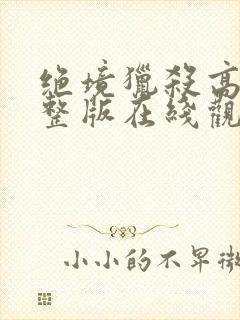 绝境獵殺高
整版在綫觀
小小的不早微